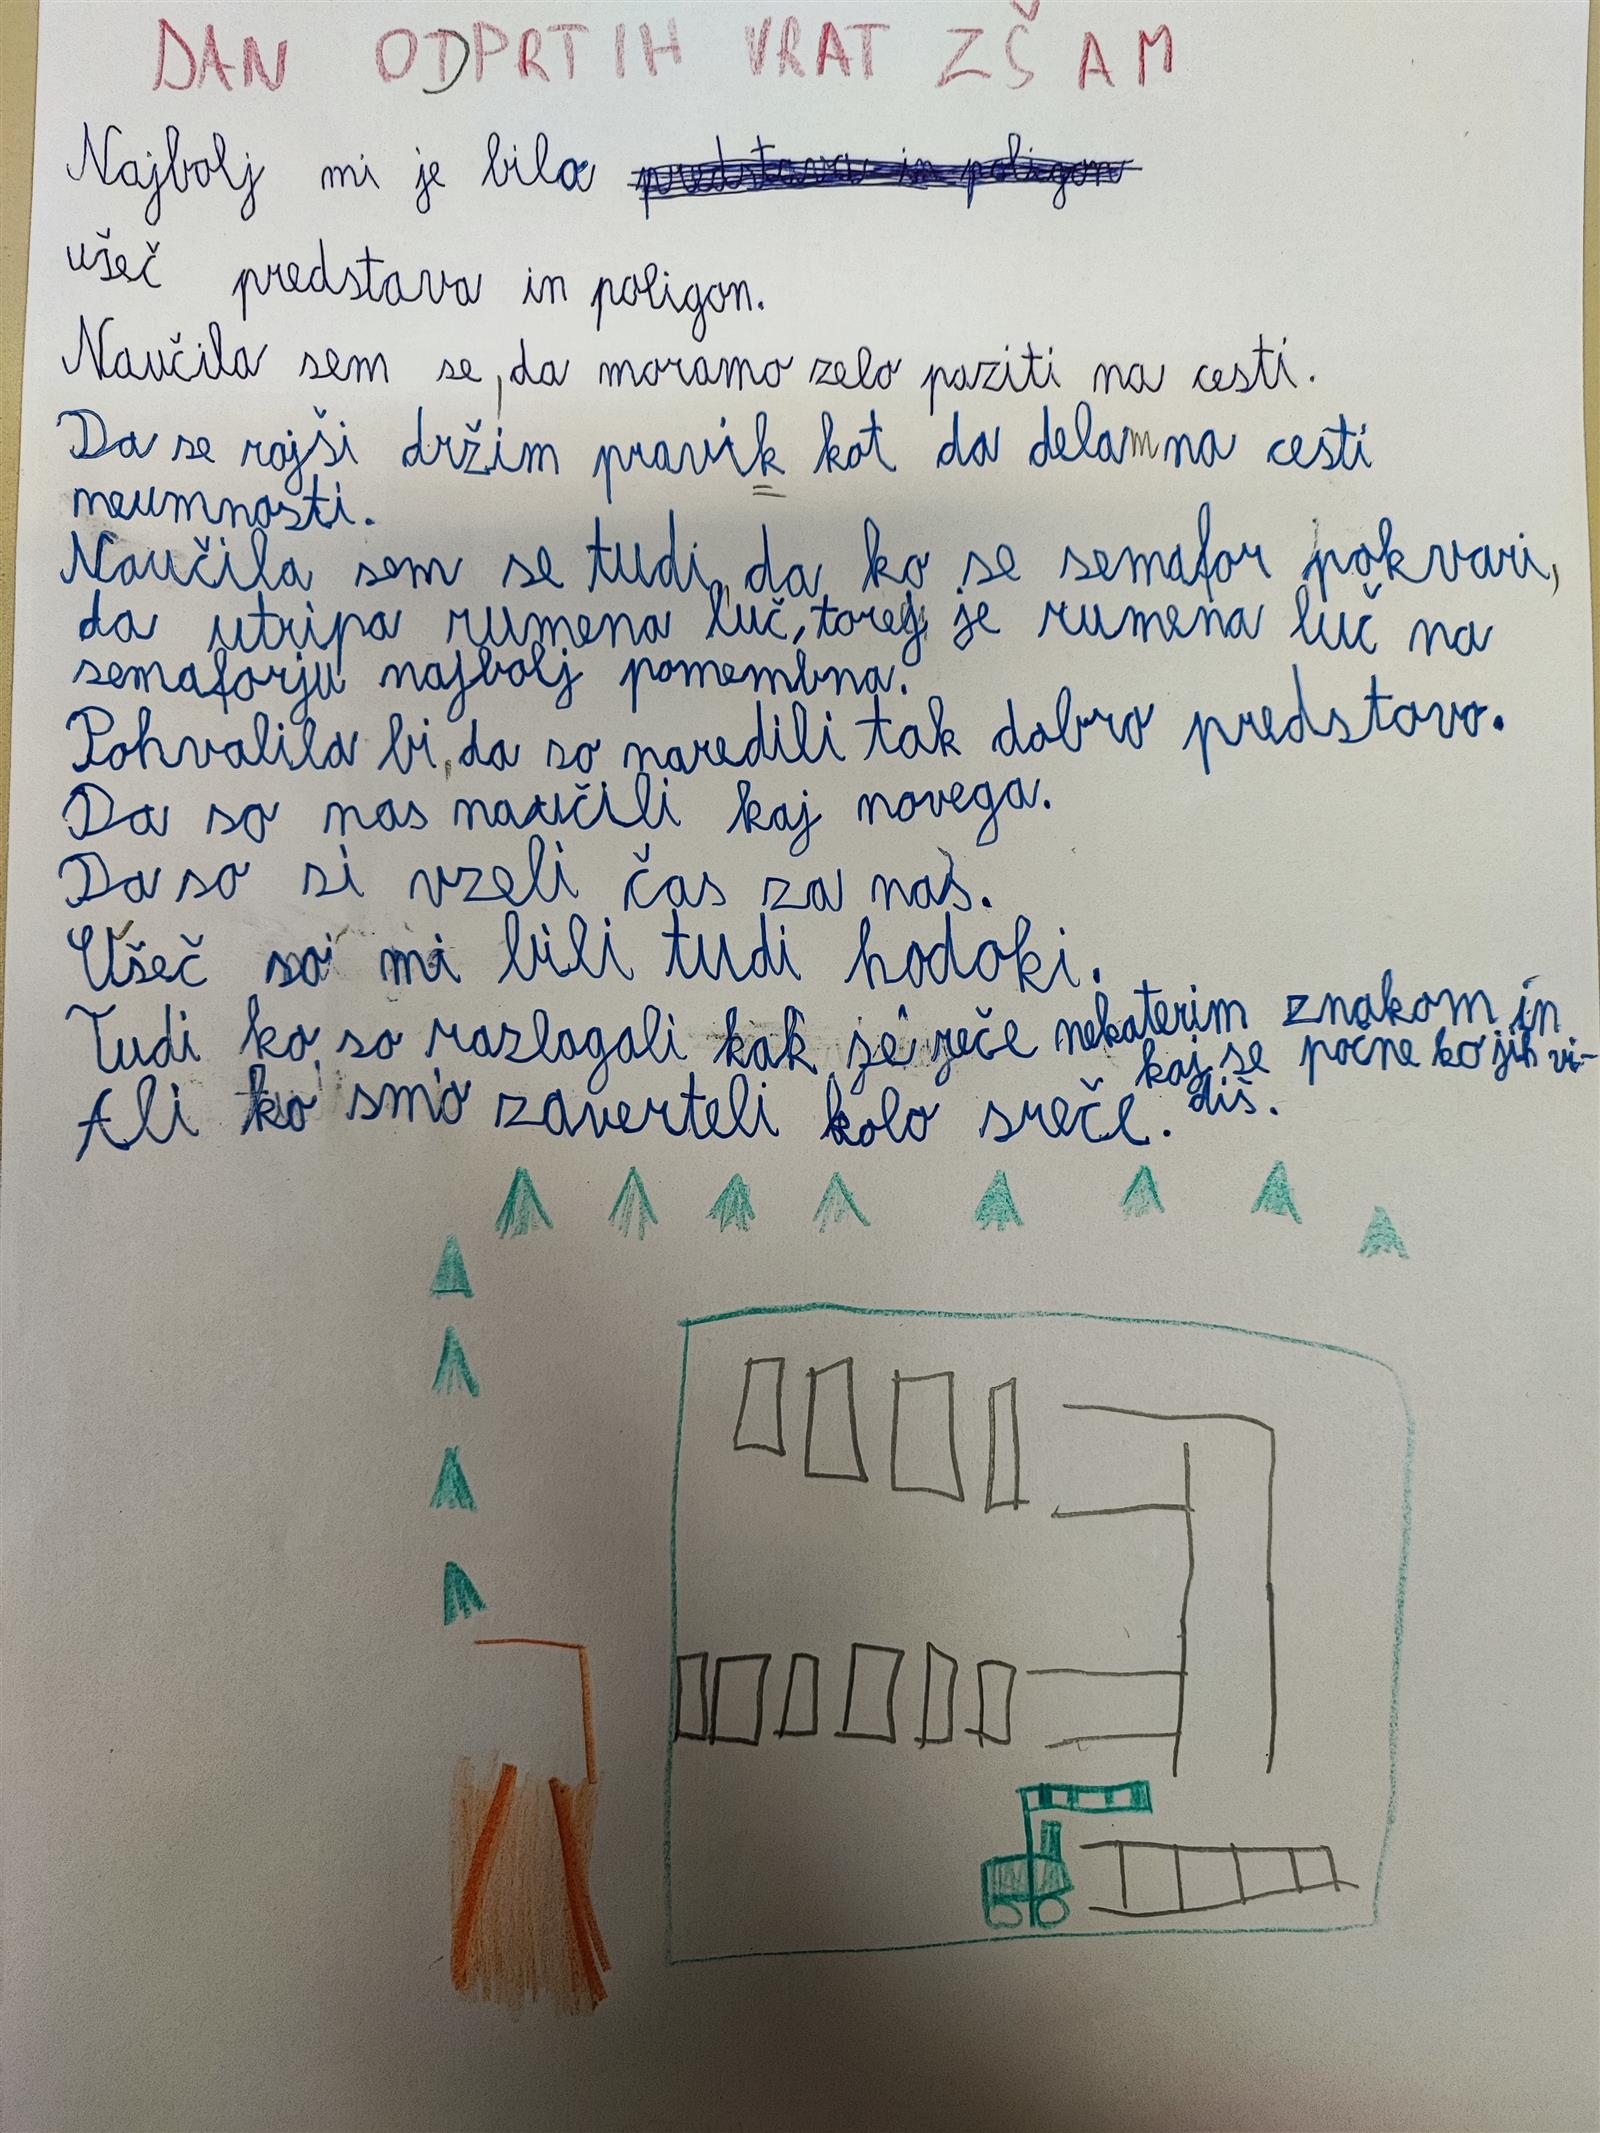 DAN ODPRTIH VRAT ZŠAM
Najbolj mi je bila predstava in poligon
ušeč predstava in poligon.
Naučila sem se, da moramo zelo paziti na cesti.
Da se rajši držim pravik kot da delam na cesti
neumnosti.
Naučila sem se tudi, da ko se semafor pokvari,
da utripa rumena luč, torej je rumena luč na
semaforju najbolj pomembna.
Pohvalila bi, da so naredili tak dobro predstavo.
Da so nas naučili kaj novega.
Da so si vzeli čas za nas.
Ušeč so mi bili tudi hodoki.
Tudi ko so razlagali kak se reče nekaterim znakom in
kaj se počne ko jih vi-
diš.
Ali ko smo zaverteli kolo sreče.